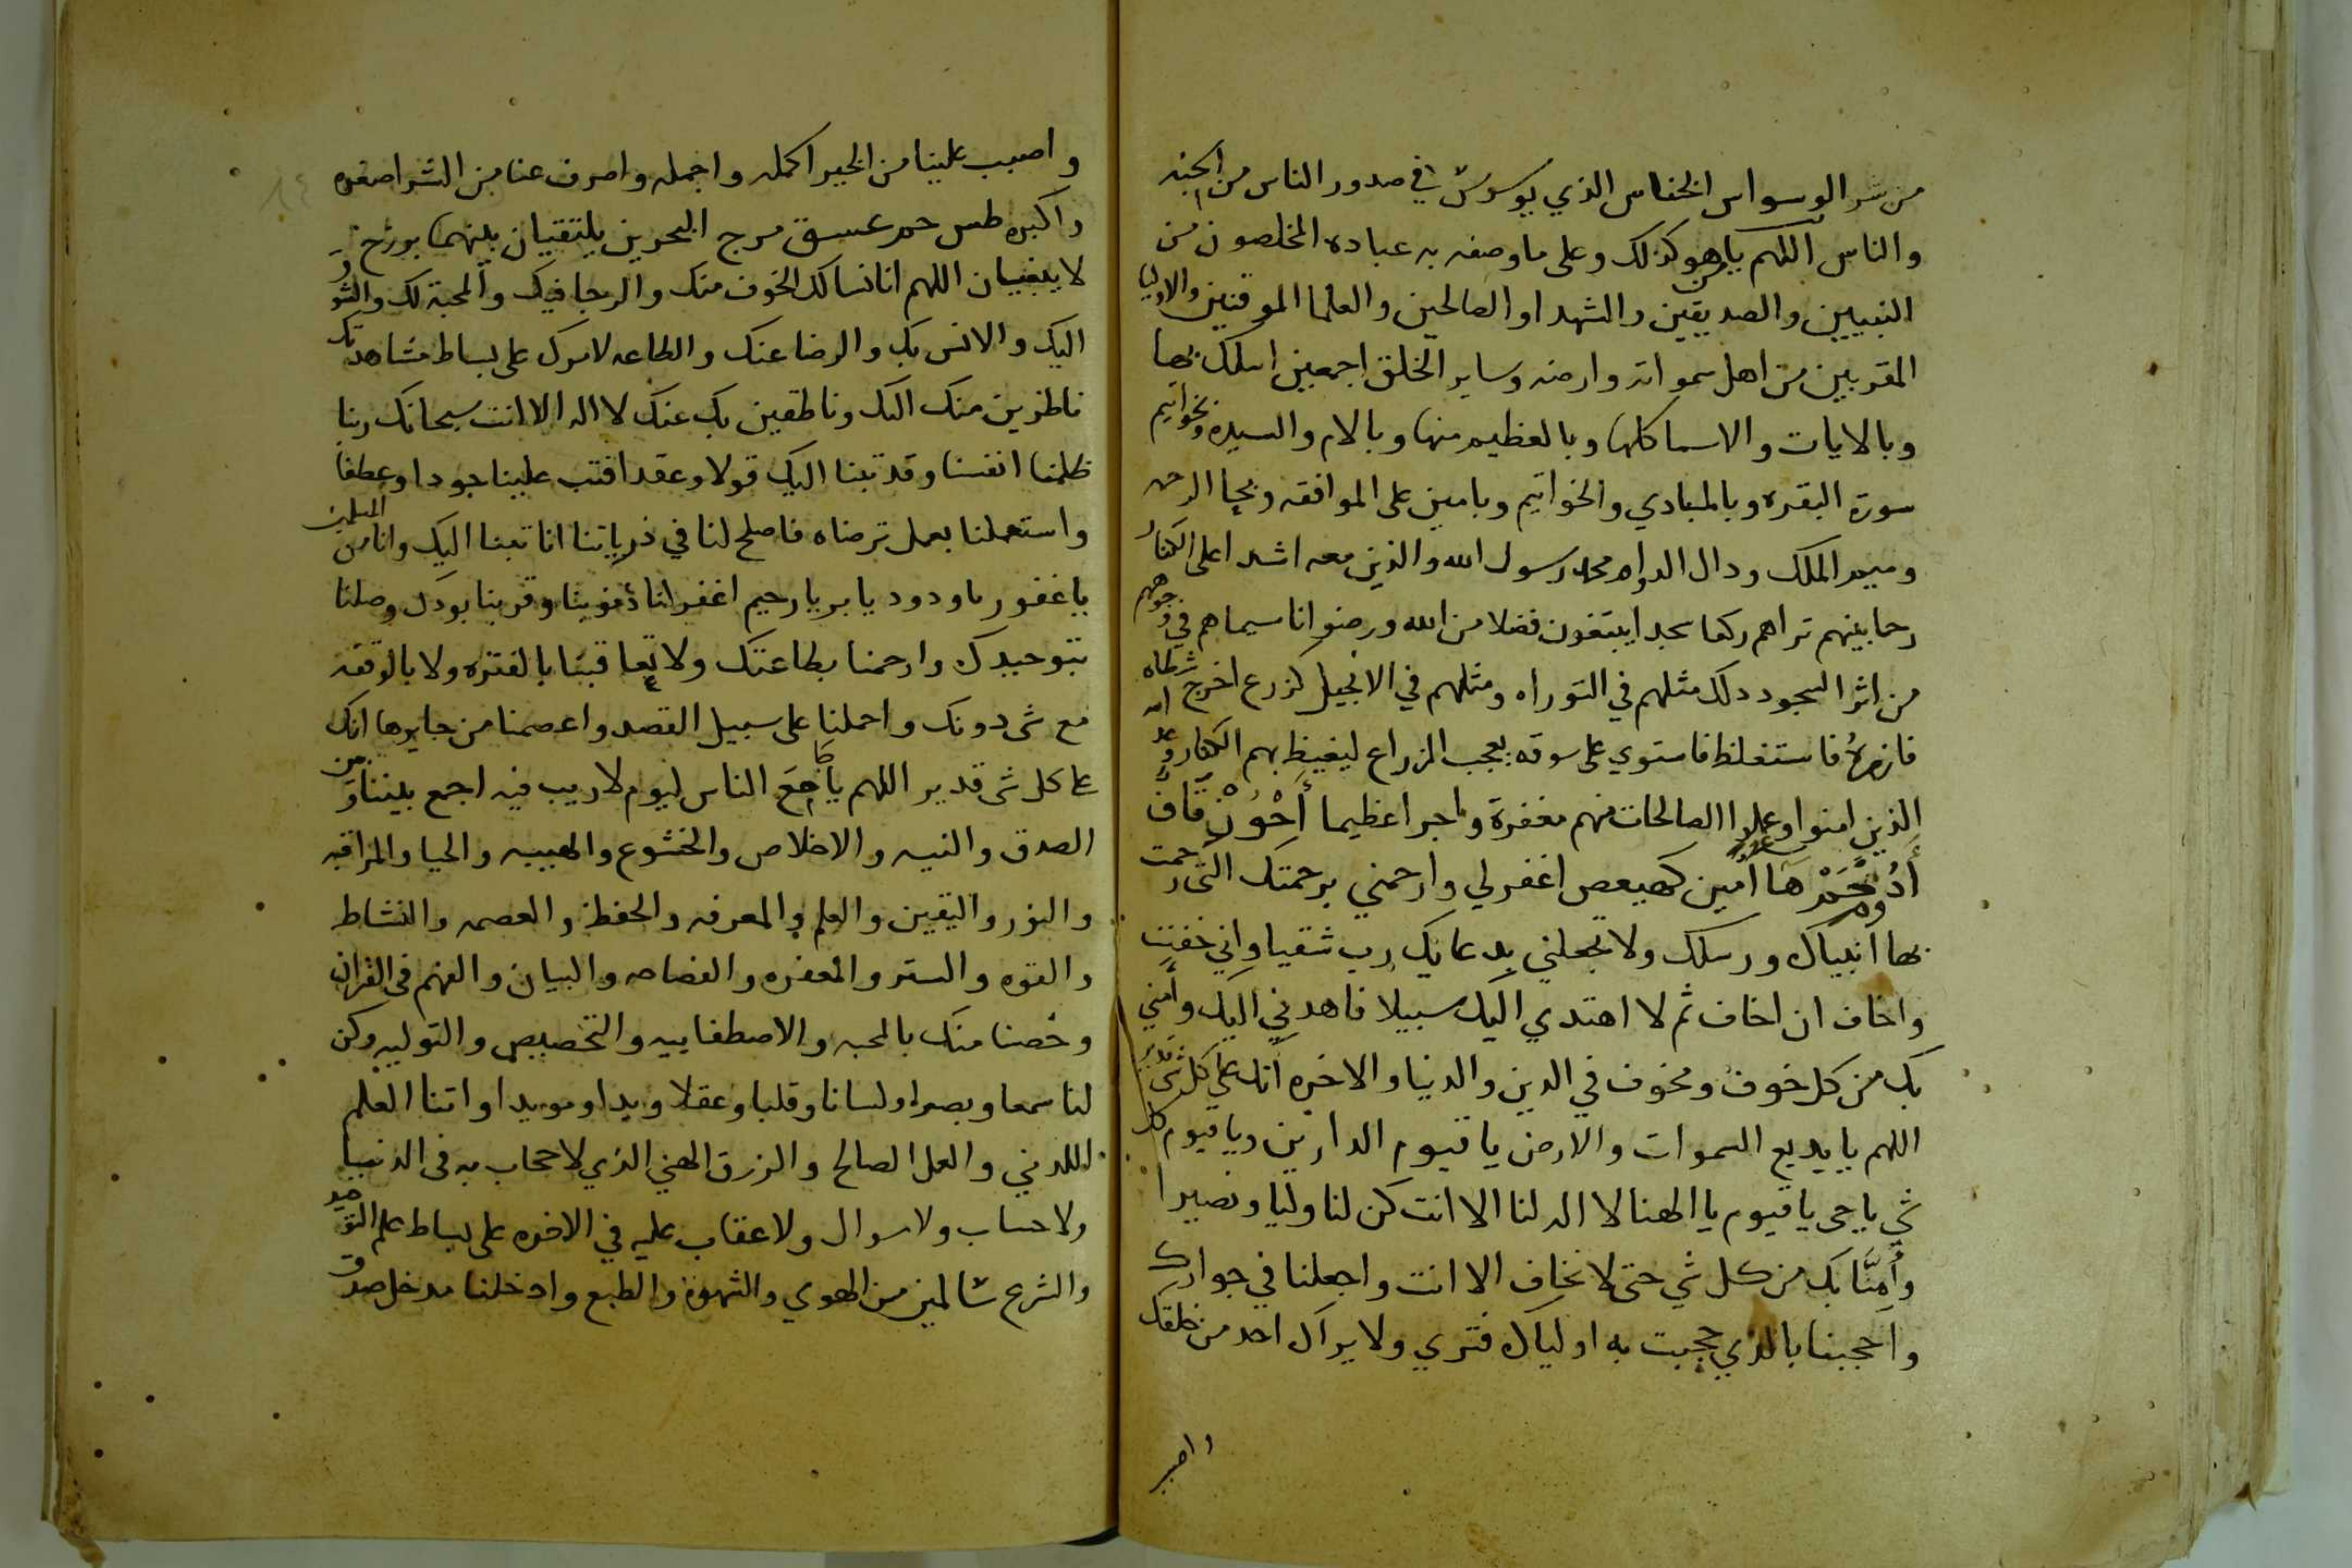 من شر الوسواس الخناس الذي يوسوس في صدور الناس من الجنه
والناس اللهم يا من هو كذلك وعلى ما وصفه به عباده المخلصون من
النبيين والصديقين والشهدا والصالحين والعلما الموقنين والاوليا
المقربين من اهل سمواته وارضه وساير الخلق اجمعين اسلك بها
وبالايات والاسما كلها وبالعظيم منها وبالام والسيده وبخواتيم
سورة البقره وبالمبادي والخواتيم وبامين على الموافقه وبحا الرحمه
وميم الملك ودال الدوام محمد رسول الله والذين معه اشدا على الكفار
رحما بينهم تراهم ركعا سجدا يبتغون فضلا من الله ورضوانا سيماهم في وجوههم
من اثر السجود دلك مثلهم في التوراه ومثلهم في الانجيل كزرع اخرج شطاه
فازره فاستغلظ فاستوي على سوقه يعجب الزراع ليغيظ بهم الكفار وعد الله
الذين امنوا وعملوا الصالحات منهم مغفرة واجرا عظيما أحون قاف
أدم حم ها أمين كهيعص اغفر لي وارحمني برحمتك التي رحمت
بها انبياك ورسلك ولا تجعلني بدعايك رب شقيا واني خفت
واخاف ان اخاف ثم لا اهتدي اليك سبيلا فاهدني اليك وأمني
بك من كل خوف ومخوف في الدين والدنيا والاخره انك على كل شي قدير
اللهم يا بديع السموات والارض يا قيوم الدارين ويا قيوم كل
شي يا حي يا قيوم يا الهنا لا اله لنا الا انت كن لنا وليا ونصيرا
وأمنا بك من كل شي حتى لا نخاف الا انت واجعلنا في جوارك
واحجبنا بالذي حجبت به اولياك فتري ولا يراك احد من خلقك
واصبب
واصبب علينا من الخير اكمله واجمله واصرف عنا من الشر اصغره
واكبره طس حم عسق مرج البحرين يلتقيان بينهما برزخ
لا يبغيان اللهم انا نسالك الخوف منك والرجا فيك والمحبة لك والشوق
اليك والانس بك والرضا عنك والطاعه لامرك على بساط مشاهدتك
ناظرين منك اليك وناطقين بك عنك لا اله الا انت سبحانك ربنا
ظلمنا انفسنا وقد تبنا اليك قولا وعقدا فتب علينا جودا وعطفا
واستعملنا بعمل ترضاه فاصلح لنا في ذرياتنا انا تبنا اليك وانا من المسلمين
يا غفور يا ودود يا بر يا رحيم اغفر لنا ذنوبنا وقربنا بودك وصلنا
بتوحيدك وارحمنا بطاعتك ولا تعاقبنا بالفتره ولا بالوقفه
مع شي دونك واحملنا على سبيل القصد واعصمنا من جايرها انك
على كل شي قدير اللهم يا جامع الناس ليوم لا ريب فيه اجمع بيننا وبين
الصدق والنيه والاخلاص والخشوع والهيبه والحيا والمراقبه
والنور واليقين والعلم والمعرفه والحفظ والعصمه والنشاط
والقوه والستر والمغفره والفصاحه والبيان والفهم في القران
وخصنا منك بالمحبه والاصطفاييه والتخصيص والتوليه وكن
لنا سمعا وبصرا ولسانا وقلبا وعقلا ويدا ومويدا واتنا العلم
اللدني والعمل الصالح والرزق الهني الذي لا حجاب به في الدنيا
ولا حساب ولا سوال ولا عقاب عليه في الاخره على بساط علم التوحيد
والشرع سالمين من الهوي والشهوة والطبع وادخلنا مدخل صدق